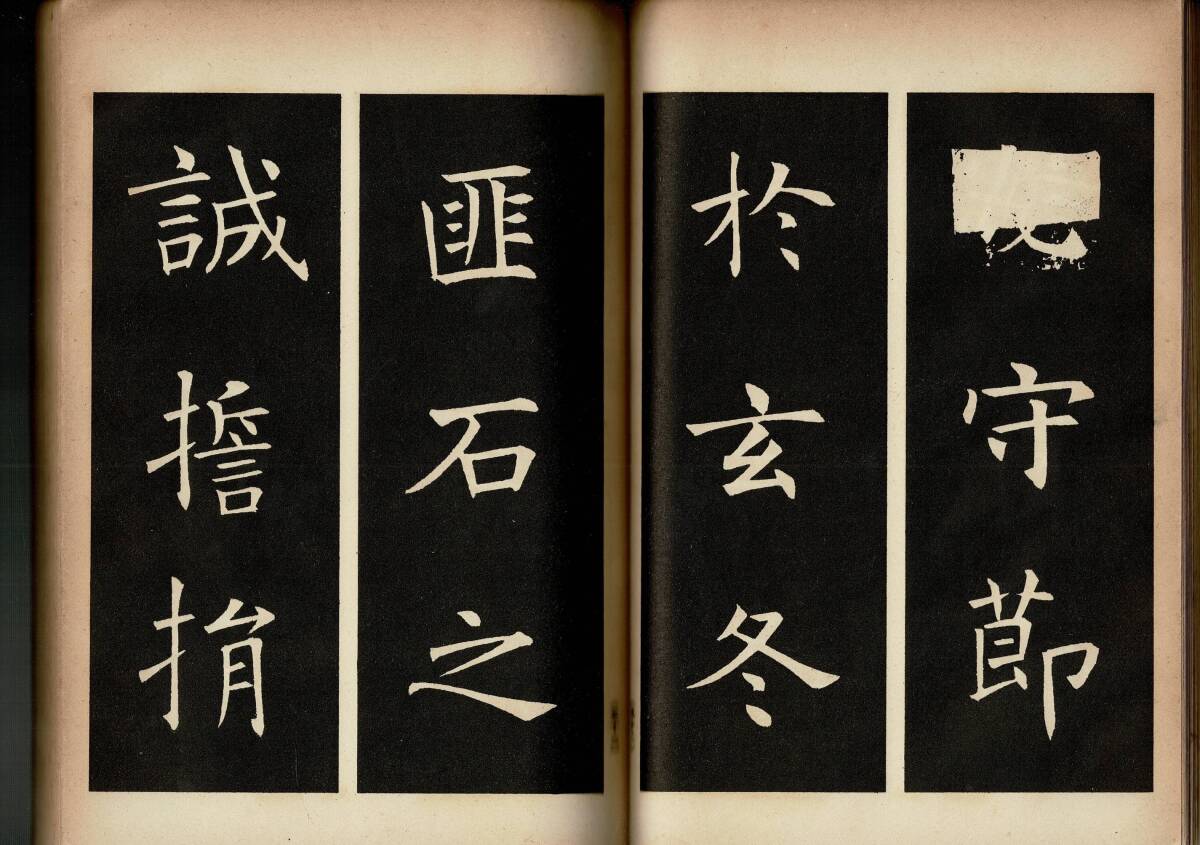 守節
於玄冬
匪石之
誠擔捐